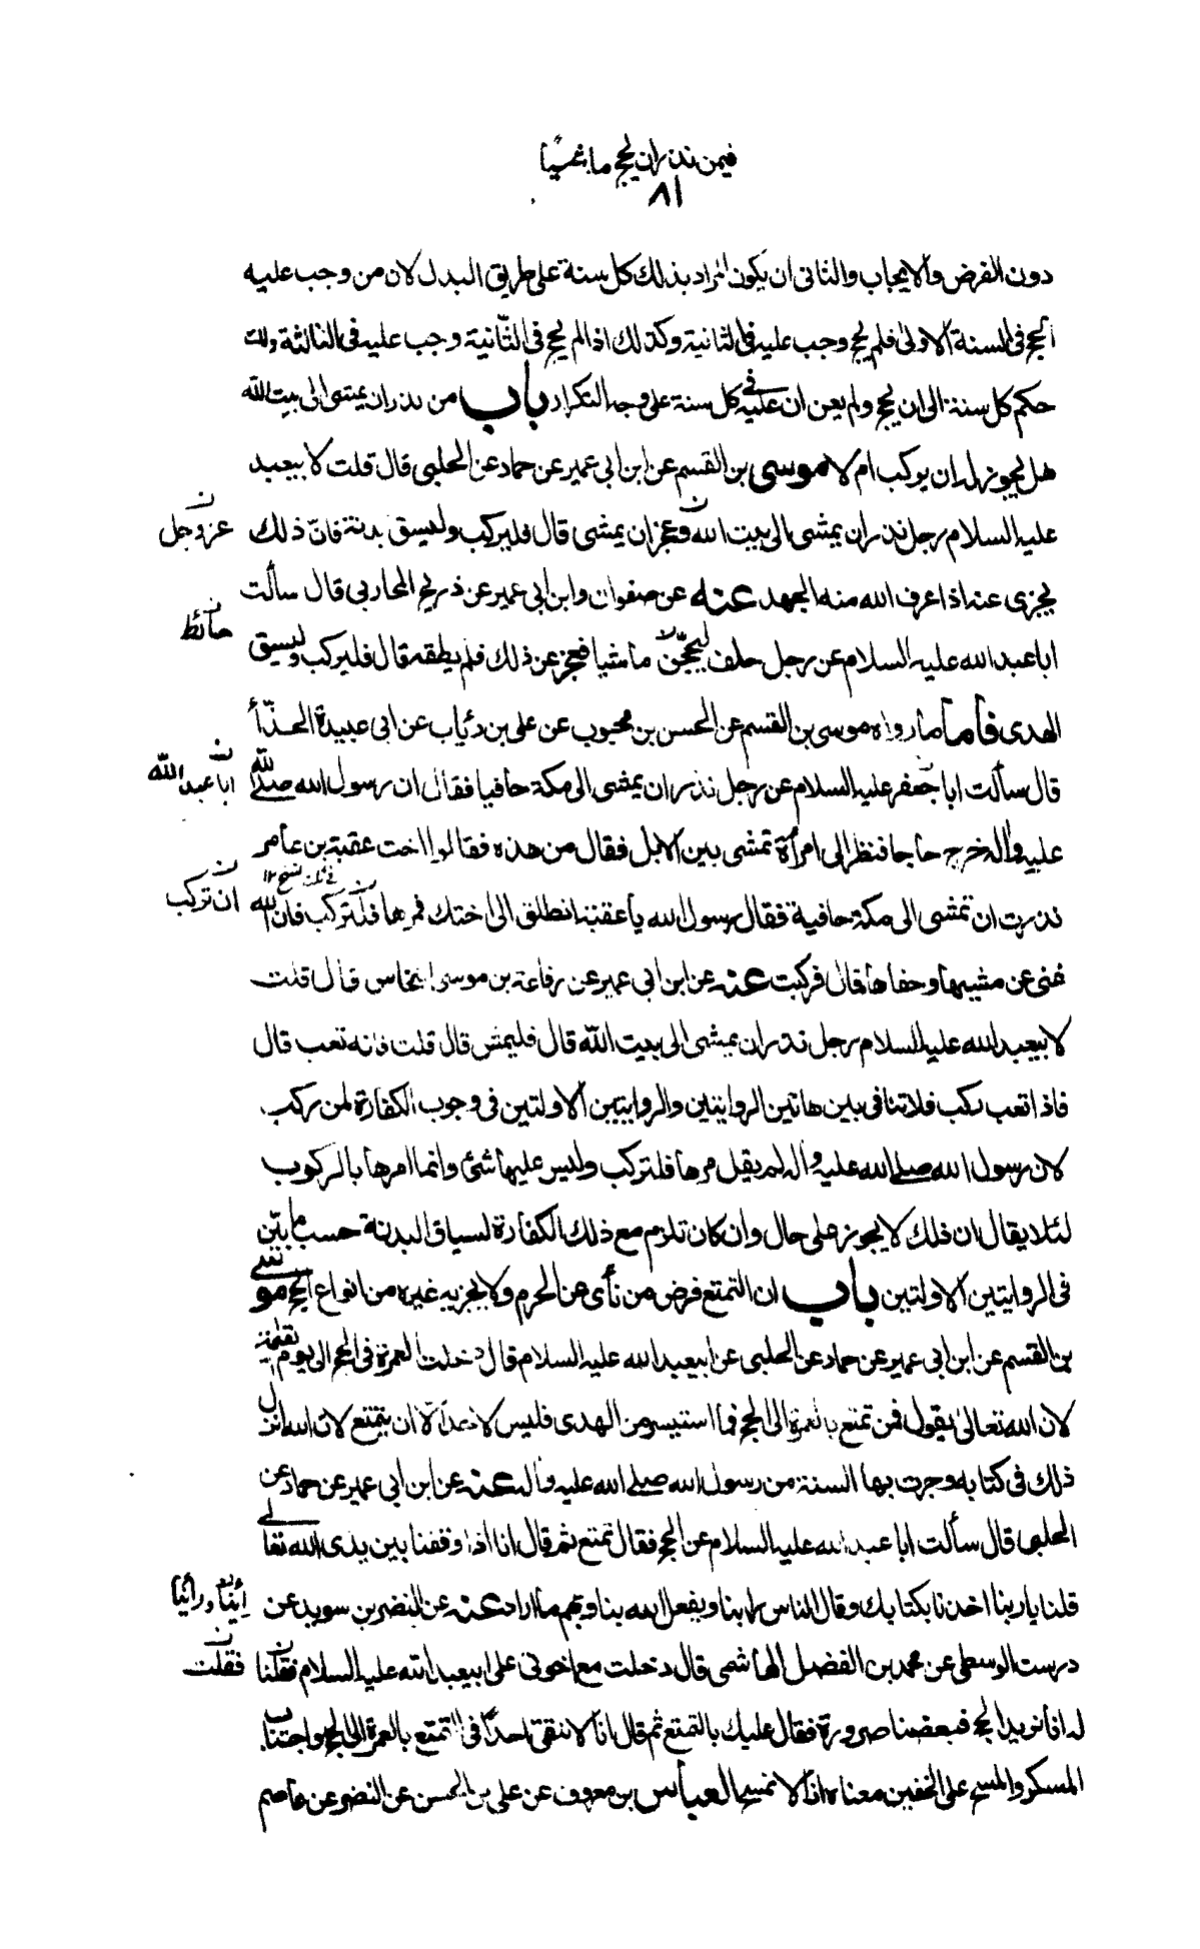 فيمن نذر ان يحج ماشيًا
٨١
دون الفرض والايجاب والثانى ان يكون المراد بذلك كل سنة على طريق البدل لان من وجب عليه
الحج فى السنة الاولى فلم يحج وجب عليه فى الثانية وكذلك اذا لم يحج فى الثّانية وجب عليه فى الثالثة وذلك
حكم كل سنة الى ان يحج ولم يعن ان عليه فى كل سنة على وجه التكرار باب من نذر ان يمشى الى بيت الله
هل يجوز له ان يركب ام لا موسى بن القسم عن ابن ابى عمير عن حماد عن الحلبى قال قلت لابيعبد
عليه السلام رجل نذر ان يمشى الى بيت الله وعجز ان يمشى قال فليركب وليسق بدنة فان ذلك
عز وجل
يجزى عنه اذا عرف الله منه الجهد عنه عن صفوان وابن ابى عمير عن ذريح المحاربى قال سألت
ابا عبد الله عليه السلام عن رجل حلف ليحجّنّ ماشيا فعجز عن ذلك فلم يطقه قال فليركب وليسق
الهدى فأما ما رواه موسى بن القسم عن الحسن بن محبوب عن على بن رئاب عن ابى عبيدة الحذّاء
قال سألت ابا جعفر عليه السلام عن رجل نذر ان يمشى الى مكة حافيا فقال ان رسول الله صلى الله
ابا عبد الله
عليه واله خرج حاجا فنظر الى امرأة تمشى بين الابل فقال من هذه فقالوا اخت عقبة بن عامر
نذرت ان تمشى الى مكة حافية فقال رسول الله يا عقبة انطلق الى اختك فمرها فلتركب فان الله
ان تركب
غنى عن مشيها وحفاها قال فركبت عنه عن ابن ابى عمير عن رفاعة بن موسى النخاس قال قلت
لابيعبد الله عليه السلام رجل نذر ان يمشى الى بيت الله قال فليمش قال قلت فانه تعب قال
فاذا تعب ركب فلا تنافى بين هاتين الروايتين والروايتين الاولتين فى وجوب الكفارة لمن ركب
لان رسول الله صلى الله عليه واله لم يقل مرها فلتركب وليس عليها شئ وانما امرها بالركوب
لئلا يقال ان ذلك لا يجوز على حال وان كان تلزم مع ذلك الكفارة لسياق البدنة حسب ما بيّن
فى الروايتين الاولتين باب ان التمتع فرض من نأى عن الحرم ولا يجزيه غيره من انواع الحج موسى
بن القسم عن ابن ابى عمير عن حماد عن الحلبى عن ابيعبد الله عليه السلام قال دخلت العمرة فى الحج الى يوم القيمة
لان الله تعالى يقول فمن تمتع بالعمرة الى الحج فما استيسر من الهدى فليس لاحد الّا ان يتمتع لان الله انزل
ذلك فى كتابه وجرت بها السنة من رسول الله صلى الله عليه واله عنه عن ابن ابى عمير عن حماد عن
الحلبى قال سألت ابا عبد الله عليه السلام عن الحج فقال تمتع ثم قال انا اذا وقفنا بين يدى الله تعالى
قلنا يا ربنا اخذنا بكتابك وقال الناس راينا راينا ويفعل الله بنا وبهم ما اراد عنه عن النضر بن سويد عن
درست الواسطى عن محمد بن الفضل الهاشمى قال دخلت مع اخوتى على ابيعبد الله عليه السلام فقلنا
فقلت
له انا نريد الحج فبعضنا صرورة فقال عليك بالتمتع ثم قال انّا لا نتقى احدًا فى التمتع بالعمرة الى الحج واجتناب
المسكر والمسح على الخفين معناه انا لا نمسح العباس بن معروف عن على بن الحسن عن النضر عن عاصم